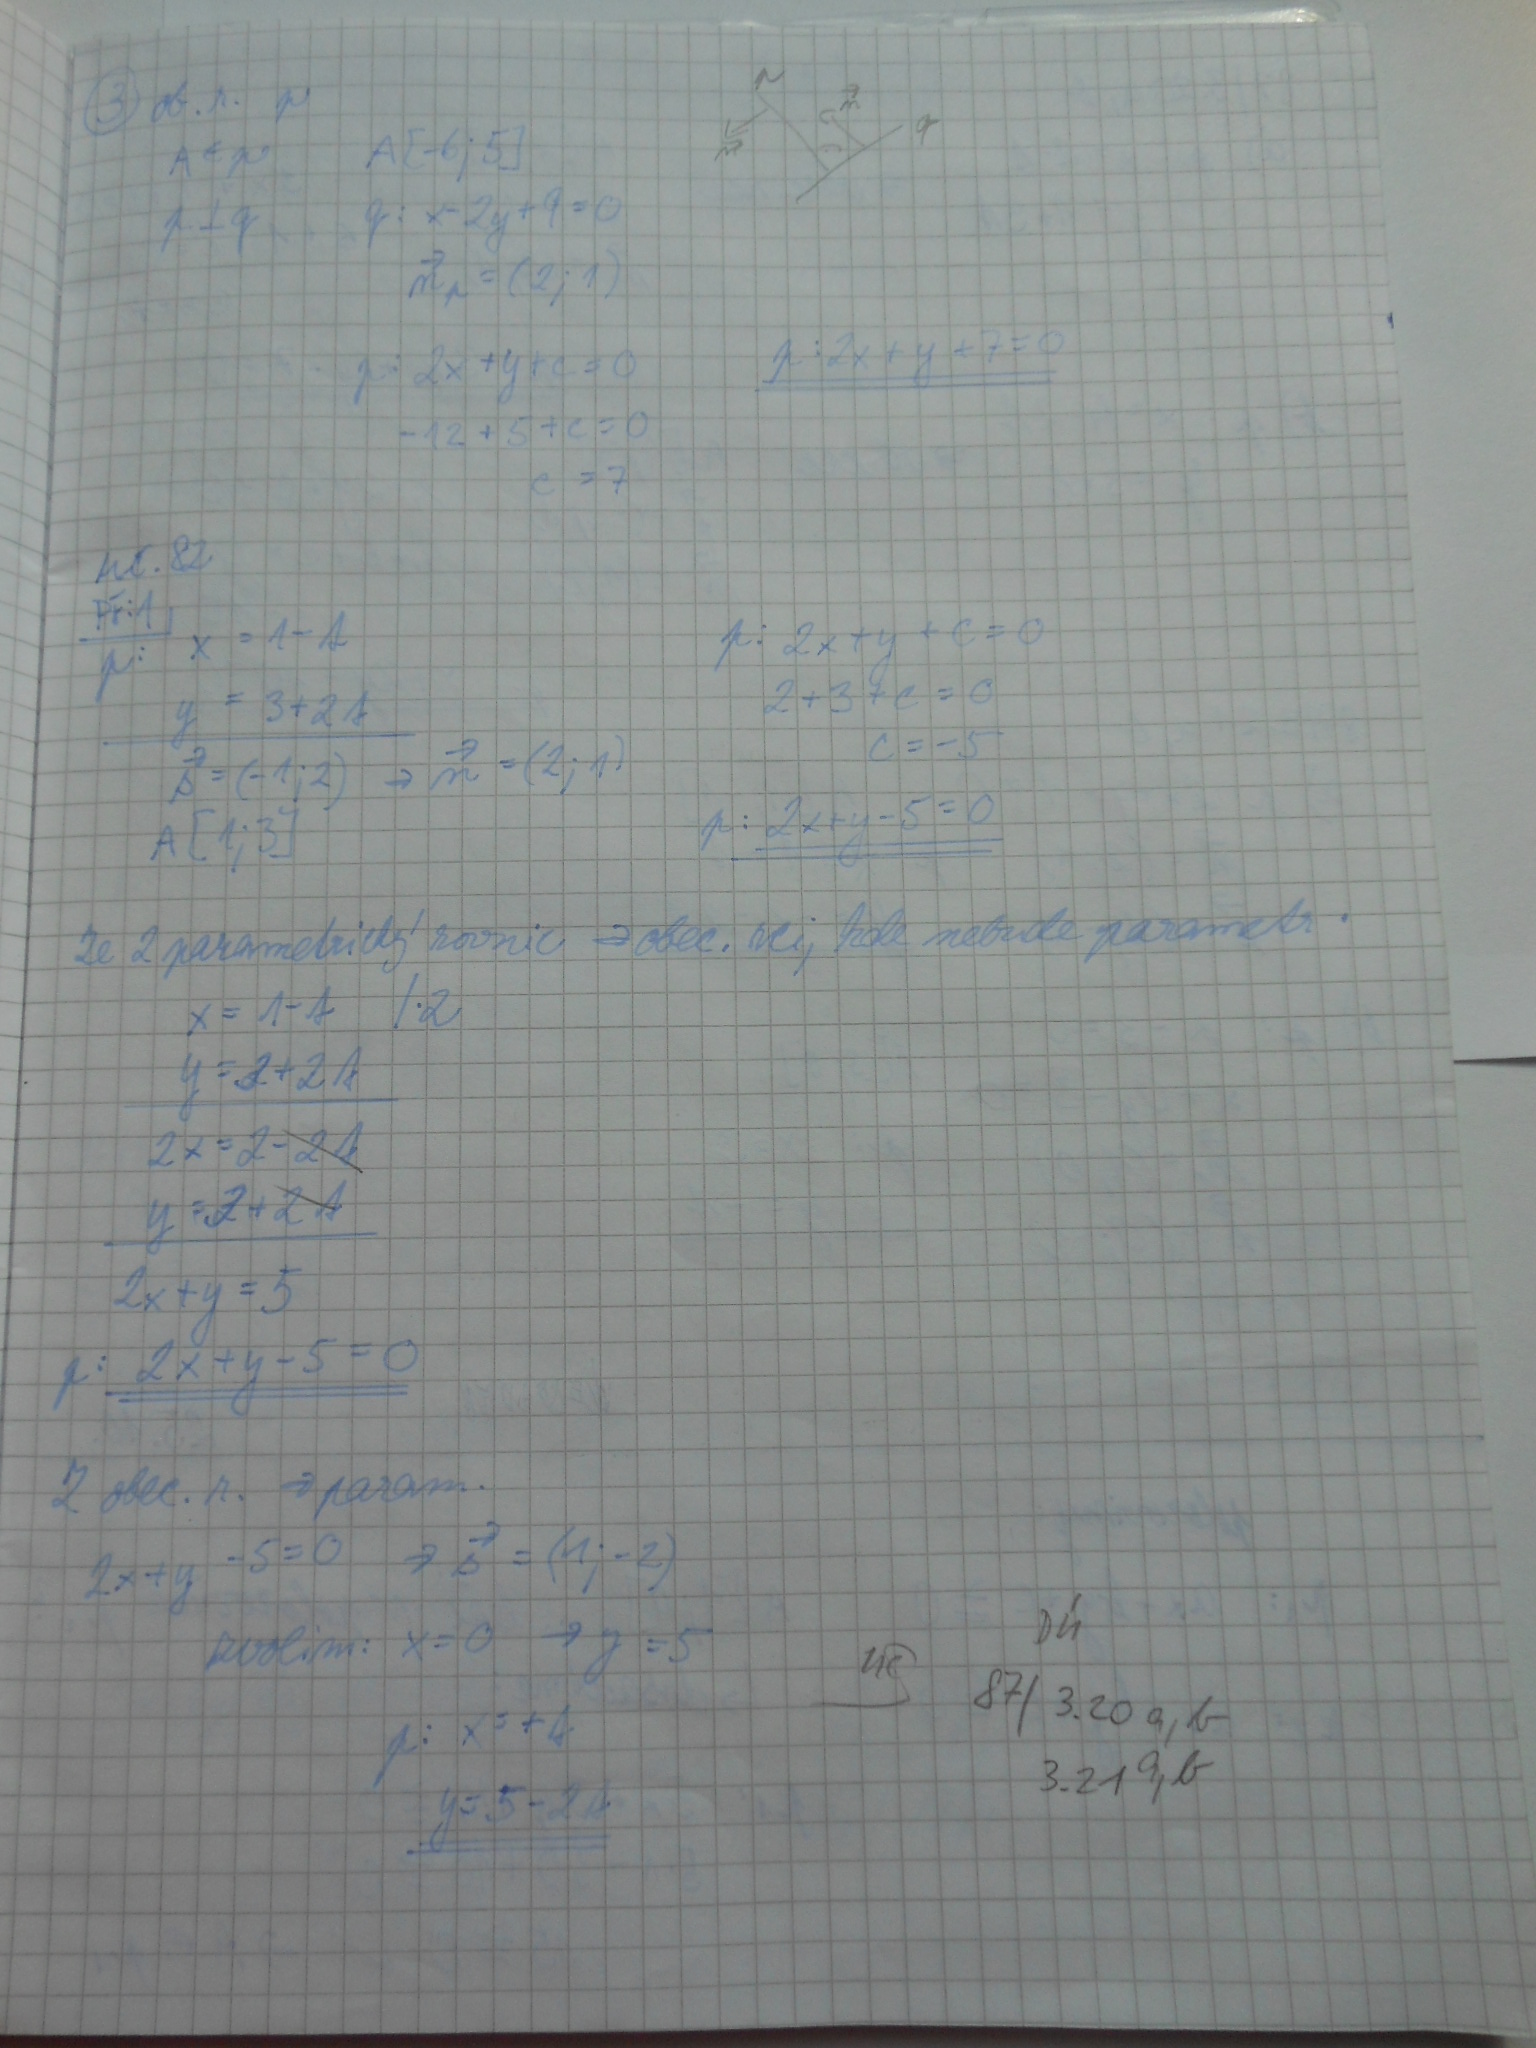 ③ ob. r. p
A ∈ p A[-6; 5]
p ⊥ q q: x - 2y + 9 = 0
n⃗p = (2; 1)
p: 2x + y + c = 0 p: 2x + y + 7 = 0
-12 + 5 + c = 0
c = 7
p
n⃗
n⃗
q
uč. 82
Př: 1,
p: x = 1 - t p: 2x + y + c = 0
y = 3 + 2t 2 + 3 + c = 0
c = -5
s⃗ = (-1; 2) → n⃗ = (2; 1)
A[1; 3] p: 2x + y - 5 = 0
Ze 2 parametrický rovnic ⇒ obec. rci, kde nebude parametr.
x = 1 - t /·2
y = 3 + 2t
2x = 2 - 2t
y = 3 + 2t
2x + y = 5
p: 2x + y - 5 = 0
Z obec. r. ⇒ param.
2x + y - 5 = 0 ⇒ s⃗ = (1; -2)
zvolím: x = 0 → y = 5
p: x = + t
y = 5 - 2t
DÚ
uč 87/ 3.20 a, b
3.21 a, b